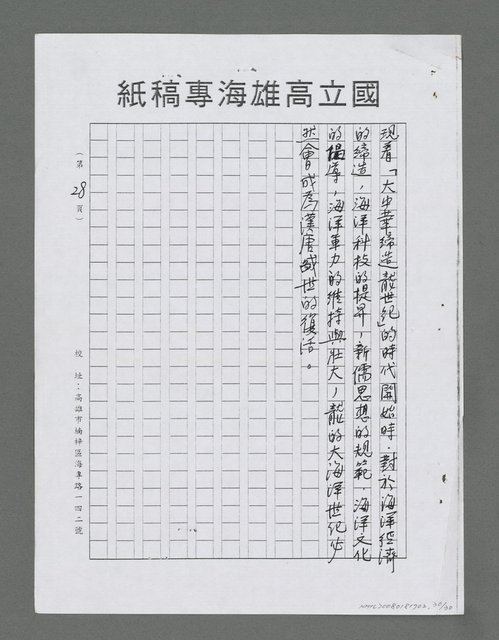 國立高雄海專稿紙
現看「大中華締造龍世紀」的時代開始時，對於海洋經濟
的締造，海洋科技的提昇，新儒思想的規範，海洋文化
的倡導，海洋軍力的維持與壯大，龍的大海洋世紀必
然會成為漢唐盛世的復活。
（第28頁）
校址：高雄市楠梓區海專路一四二號
NMTL20080181702, 30/30